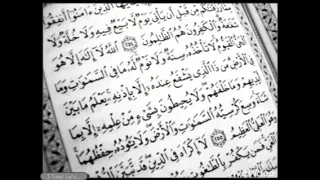 يَٰٓأَيُّهَا ٱلَّذِينَ ءَامَنُوٓا۟ أَنفِقُوا۟
مِمَّا رَزَقْنَٰكُم مِّن قَبْلِ أَن يَأْتِىَ يَوْمٌ لَّا بَيْعٌ فِيهِ وَلَا خُلَّةٌ وَلَا
شَفَٰعَةٌ وَٱلْكَٰفِرُونَ هُمُ ٱلظَّٰلِمُونَ ٢٥٤ ٱللَّهُ لَآ إِلَٰهَ إِلَّا هُوَ
ٱلْحَىُّ ٱلْقَيُّومُ لَا تَأْخُذُهُۥ سِنَةٌ وَلَا نَوْمٌ لَّهُۥ مَا فِى ٱلسَّمَٰوَٰتِ وَمَا
فِى ٱلْأَرْضِ مَن ذَا ٱلَّذِى يَشْفَعُ عِندَهُۥٓ إِلَّا بِإِذْنِهِۦ يَعْلَمُ مَا بَيْنَ
أَيْدِيهِمْ وَمَا خَلْفَهُمْ وَلَا يُحِيطُونَ بِشَىْءٍ مِّنْ عِلْمِهِۦٓ إِلَّا بِمَا
شَآءَ وَسِعَ كُرْسِيُّهُ ٱلسَّمَٰوَٰتِ وَٱلْأَرْضَ وَلَا يَـُٔودُهُۥ حِفْظُهُمَا
وَهُوَ ٱلْعَلِىُّ ٱلْعَظِيمُ ٢٥٥ لَآ إِكْرَاهَ فِى ٱلدِّينِ قَد تَّبَيَّنَ
فَمَن يَكْفُرْ بِٱلطَّٰغُوتِ